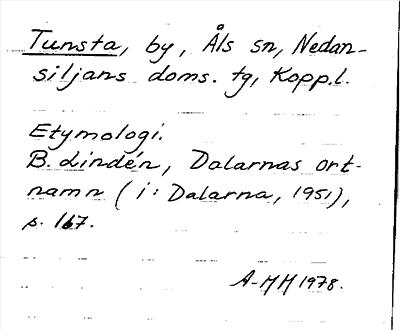 Tunsta, by, Åls sn, Nedan-
siljans doms. tg, Kopp.l.
Etymologi.
B. Lindén, Dalarnas ort-
namn (i: Dalarna, 1951),
s. 167.
A-MH 1978.